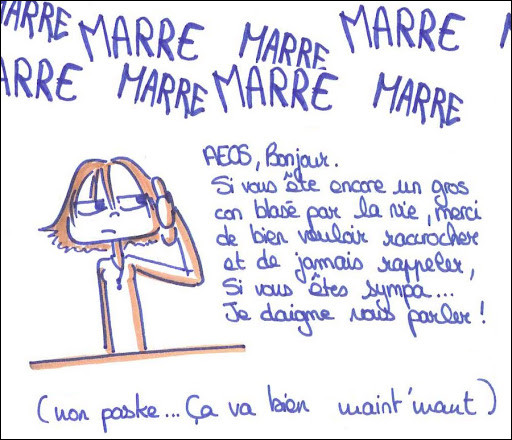 MARRE MARRE MARRE MARRE M
ARRE MARRE MARRE MARRE
AEOS, Bonjour.
Si vous ête encore un gros
con blasé par la vie, merci
de bien vouloir raccrocher
et de jamais rappeler,
Si vous êtes sympa...
Je daigne vous parler !
(non paske... Ça va bien maint'nant)